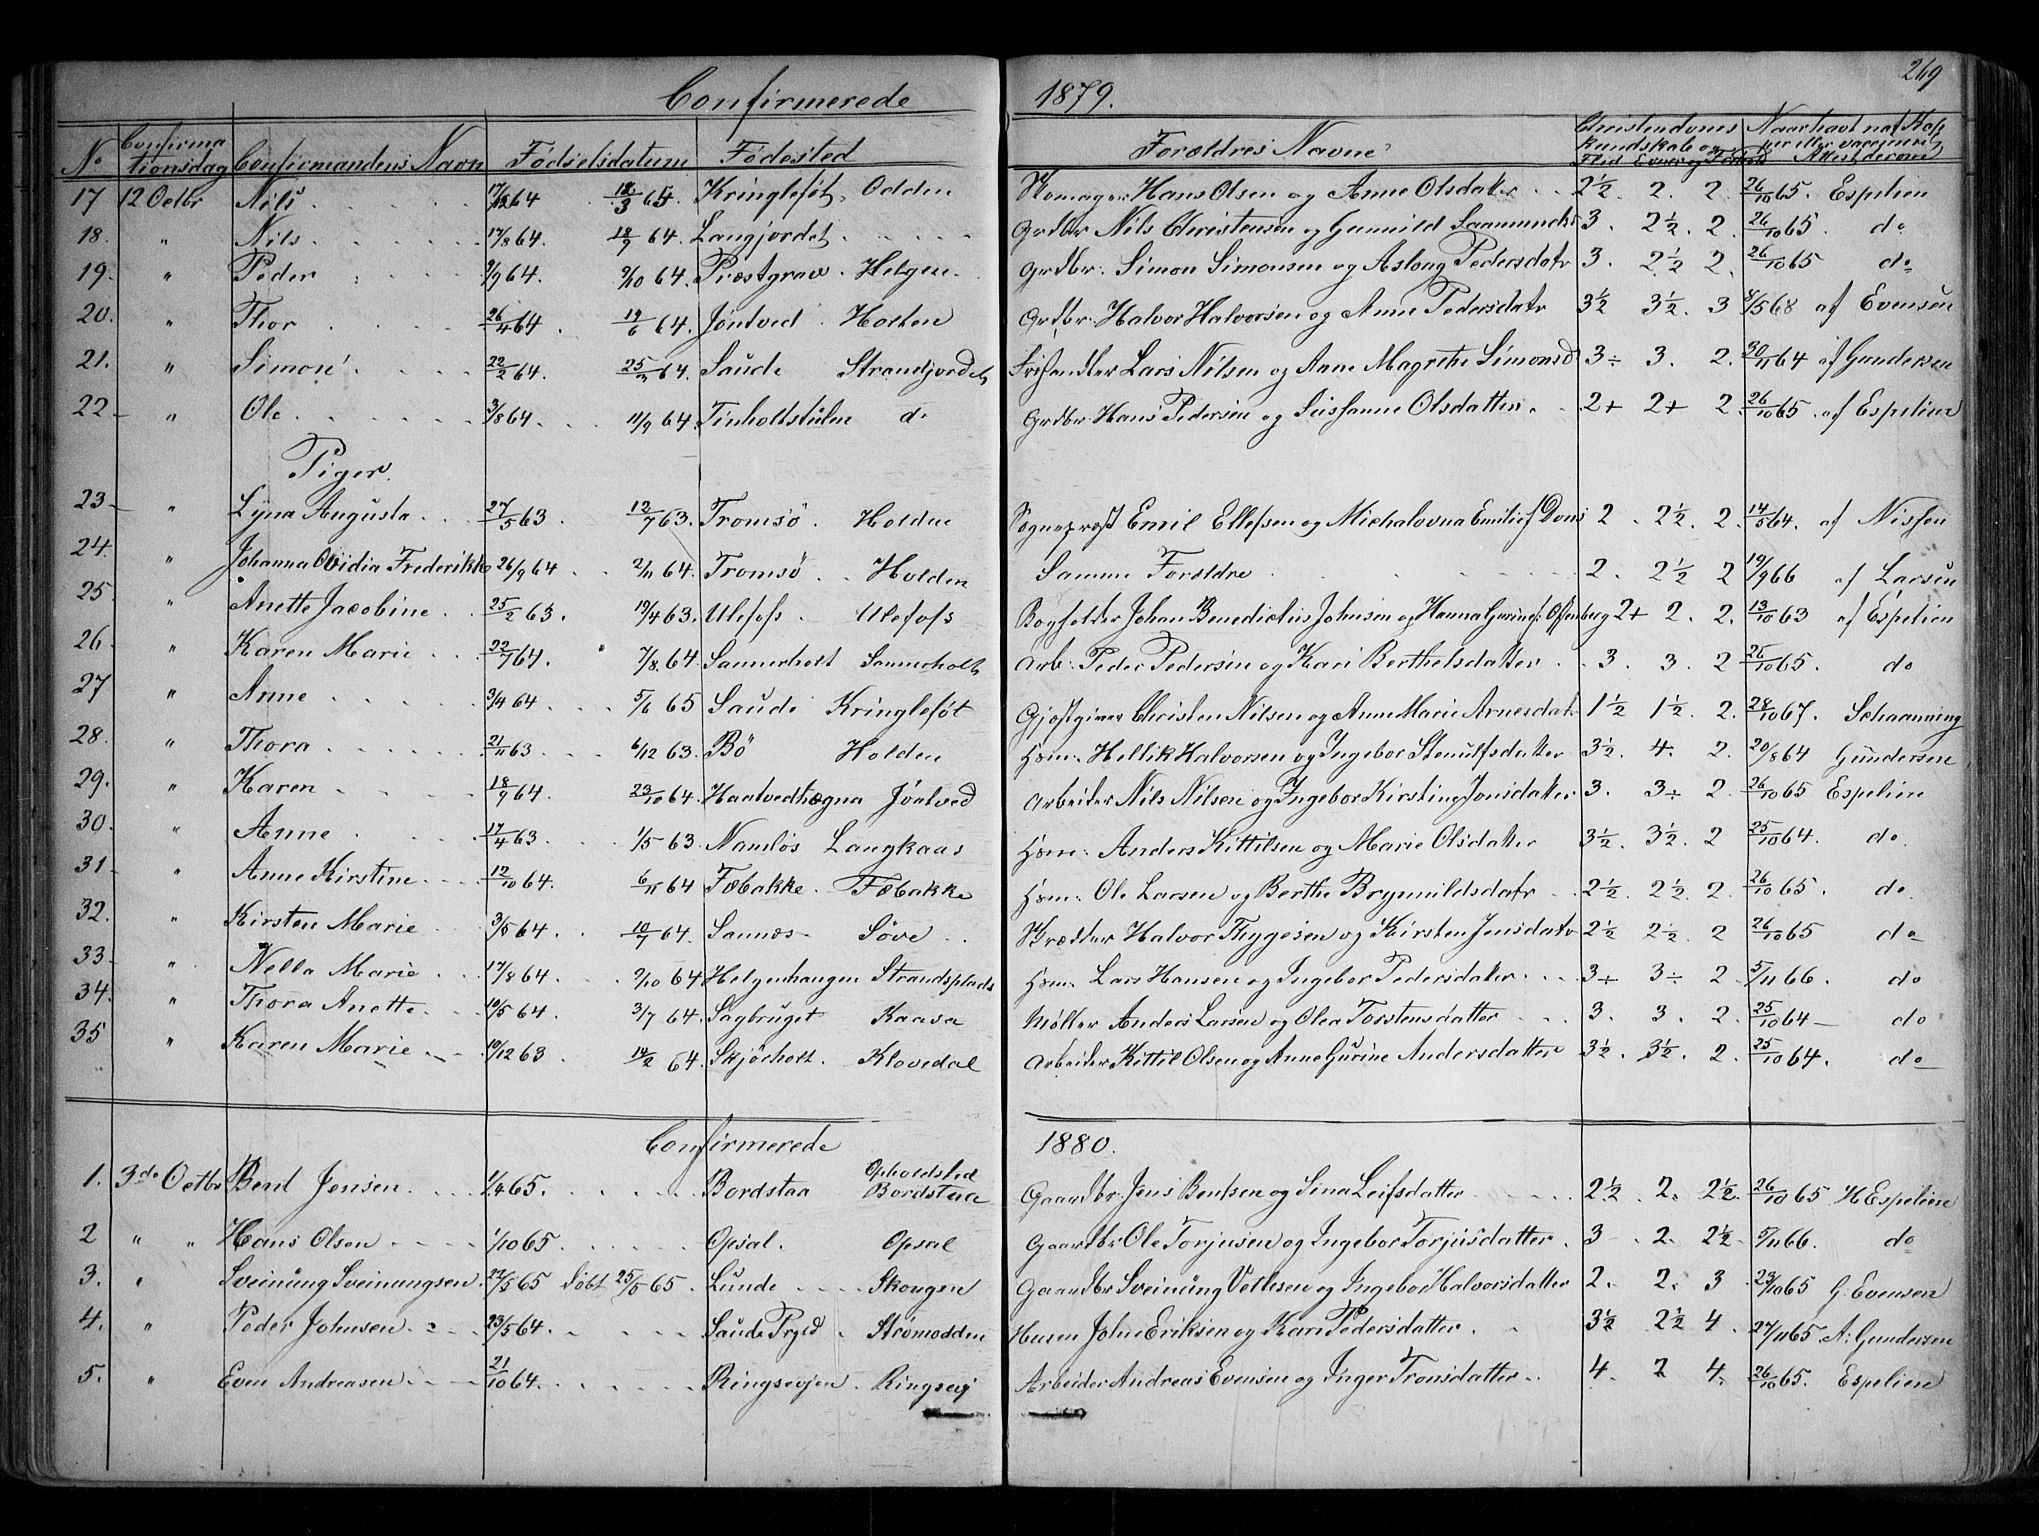 269
Confirmerede 1879.
No Confirmationsdag Confirmandens Navn Fødselsdatum Fødested Forældres Navne Christendoms Kundskab og Flid Evner og Forhold Naar havt nat. Kopper eller vaccineret Attest derom
17 12 Octbr Nils 17/12 64 12/3 65. Kringlefôt. Odden Skomager Hans Olsen og Anne Olsdater 2½ 2. 2. 26/10 65. Espelien
18. " Nils 17/8 64. 18/9 64. Langjordet Grdbr Nils Christensen og Gunnild Saamundsd 3. 2½. 2. 26/10 65. do
19. " Peder 9/9 64. 2/10 64. Præstgrav. Helgen. Grdbr. Simon Simonsen og Aslaug Pedersdatr 3. 2½ 2. 26/10 65 do
20. " Thor 26/4 64 19/6 64. Jôntved. Holten Grdbr. Halvor Halvorsen og Anne Pedersdatr 3½ 3½. 3 8/5 68 af Evensen
21. " Simon 22/2 64. 25/3 64. Saude Strandjordet Lars Nilsen og Anne Magrethe Simonsd 3÷ 3. 2. 30/11 64 af Gundersen
22 " Ole 3/8 64. 11/9 64. Tinholtstulen do Grdbr. Hans Pedersen og Sussanne Olsdatter 2+ 2+ 2. 26/10 65. af Espelien
Piger.
23 " Lyna Augusta 27/5 63. 12/7 63. Tromsô. Holden Sogneprest Emil Ellefsen og Michalovna Emilie f. Dons 2. 2½. 2. 14/5 64. af Nissen
24. " Johanna Ovidia Frederikke 26/9 64 2/11 64. Tromsô Holden Samme Forældre 2. 2½ 2 19/9 66 af Larsen
25. " Anette Jacobine 25/2 63. 19/4 63. Ulefoss. Ulefoss Bogholder Johan Benedictus Johnsen og Hanna Gurine f. Ossenberg 2+ 2. 2. 13/10 63 af Espelien
26. " Karen Marie 22/7 64. 7/8. 64. Sannerholt Sannerholt Arb: Peder Pedersen og Kari Berthelsdatter 3. 3. 2 26/10 65. do
27 " Anne 3/4 64 5/6 65 Saude Kringlefôt Gjestgiver Christen Nilsen og Anne Marie Arnesdatr 1½ 1½. 2. 28/10 67. Schaanning
28. " Thora 21/11 63 6/12 63. Bô Holden Hsm: Hellik Halvorsen og Ingebor Stenulfsdatter 3½. 4. 2. 20/8 64 Gundersen
29. " Karen 18/9 64. 23/10 64. Haatvedhægna Jôntved Arbeider Nils Nilsen og Ingebor Kirstine Jonsdater 3. 3÷ 2. 26/10 65 Espelien
30. " Anne 17/4 63. 1/5 63. Namlôs Langkaas Hsm: Anders Kittilsen og Marie Olsdatter 3½. 3½. 2 25/10 64. do.
31. " Anne Kirstine 12/10 64. 6/11 64 Fæbakke. Fæbakke Hsm: Ole Larsen og Berthe Brynnildsdatr 2½. 2½. 2 26/10 65. do
32. " Kirsten Marie 3/5 64. 10/7 64. Sannæs Sôve Kræmer Halvor Thygesen og Kirsten Jensdatr 2½ 2½. 2 26/10 65 do
33. " Nella Marie 17/8 64. 2/10 64 Helgenhaugen Strandsplads Hsm: Lars Hansen og Ingebor Pedersdater 3÷ 3÷ 2 5/11 66. do
34. " Thora Anette 10/5 64. 3/7 64. Sagbruget Kaasa Môller Anders Larsen og Olea Torstensdatter 3. 3. 2. 25/10 64 do
35 " Karen Marie 10/12 63. 14/2 64. Skjôrholt. Klovedal Arbeider Kittil Olsen og Anne Gurine Andersdatter 3½. 3½. 2 25/10 64. do
Confirmerede 1880.
Opholdsted
1. 3de Octbr Bent Jensen 1/4 65. Bordstaa Bordstaa Gaardbr Jens Bentsen og Sina Leifsdatter 2½ 2. 2½. 26/10 65 H Espelien
2 " " Hans Olsen 1/10 65. Opsal. Opsal Gaardbr Ole Torjusen og Ingebor Torjusdatter. 3 2. 2½ 5/11 66. do
3. " Sveinung Sveinungsen 22/5 65 dôbt 25/5 65. Lunde Skougen Gaardbr Sveinung Vetlesen og Ingebor Halvorsdatter 2. 2. 3 23/10 65 G. Evensen
4. " Peder Johnsen 23/5 64. Saude Prgld. Strômodden Husm John Eriksen og Kari Pedersdatter 3½ 2½ 4. 27/11 65 A: Gundersen
5. " Even Andreasen 21/10 64. Ringsevjen. Ringsevj Arbeider Andreas Evensen og Inger Tronsdatter 4. 2 4. 26/10 65. Espelien